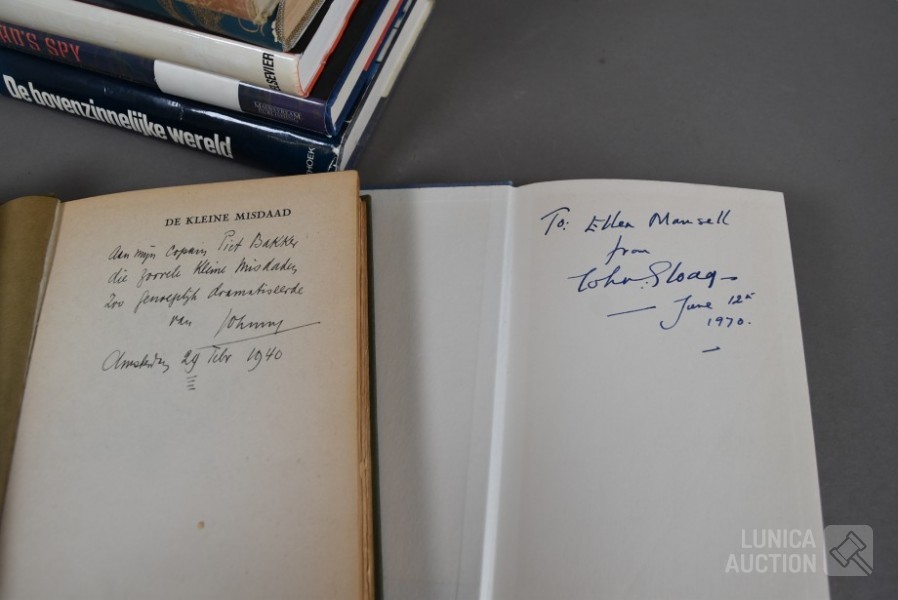 RO'S SPY
ELSEVIER
De bovenzinnelijke wereld
HOEK
DE KLEINE MISDAAD
Aan mijn Copain Piet Bakker
die zoovele kleine misdaden
zoo genoegelijk dramatiseerde
van Johnny
Amsterdam 29 Febr 1940
To: Ellen Mansell
from
John Sloag
June 12th
1970.
LUNICA
AUCTION